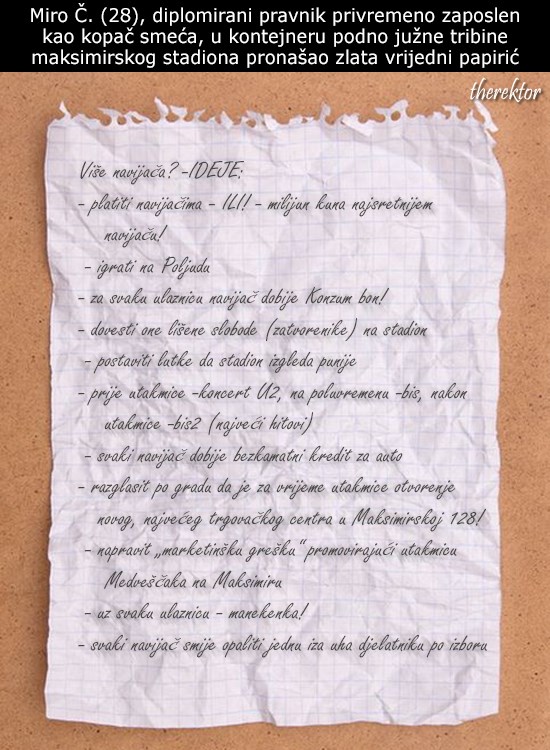 Miro Č. (28), diplomirani pravnik privremeno zaposlen
kao kopač smeća, u kontejneru podno južne tribine
maksimirskog stadiona pronašao zlata vrijedni papirić
therektor
Više navijača? -IDEJE:
- platiti navijačima - ILI! - milijun kuna najsretnijem
navijaču!
- igrati na Poljudu
- za svaku ulaznicu navijač dobije Konzum bon!
- dovesti one lišene slobode (zatvorenike) na stadion
- postaviti lutke da stadion izgleda punije
- prije utakmice -koncert U2, na poluvremenu -bis, nakon
utakmice -bis2 (najveći hitovi)
- svaki navijač dobije bezkamatni kredit za auto
- razglasit po gradu da je za vrijeme utakmice otvorenje
novog, najvećeg trgovačkog centra u Maksimirskoj 128!
- napravit „marketinšku grešku“ promovirajući utakmicu
Medveščaka na Maksimiru
- uz svaku ulaznicu - manekenka!
- svaki navijač smije opaliti jednu iza uha djelatniku po izboru